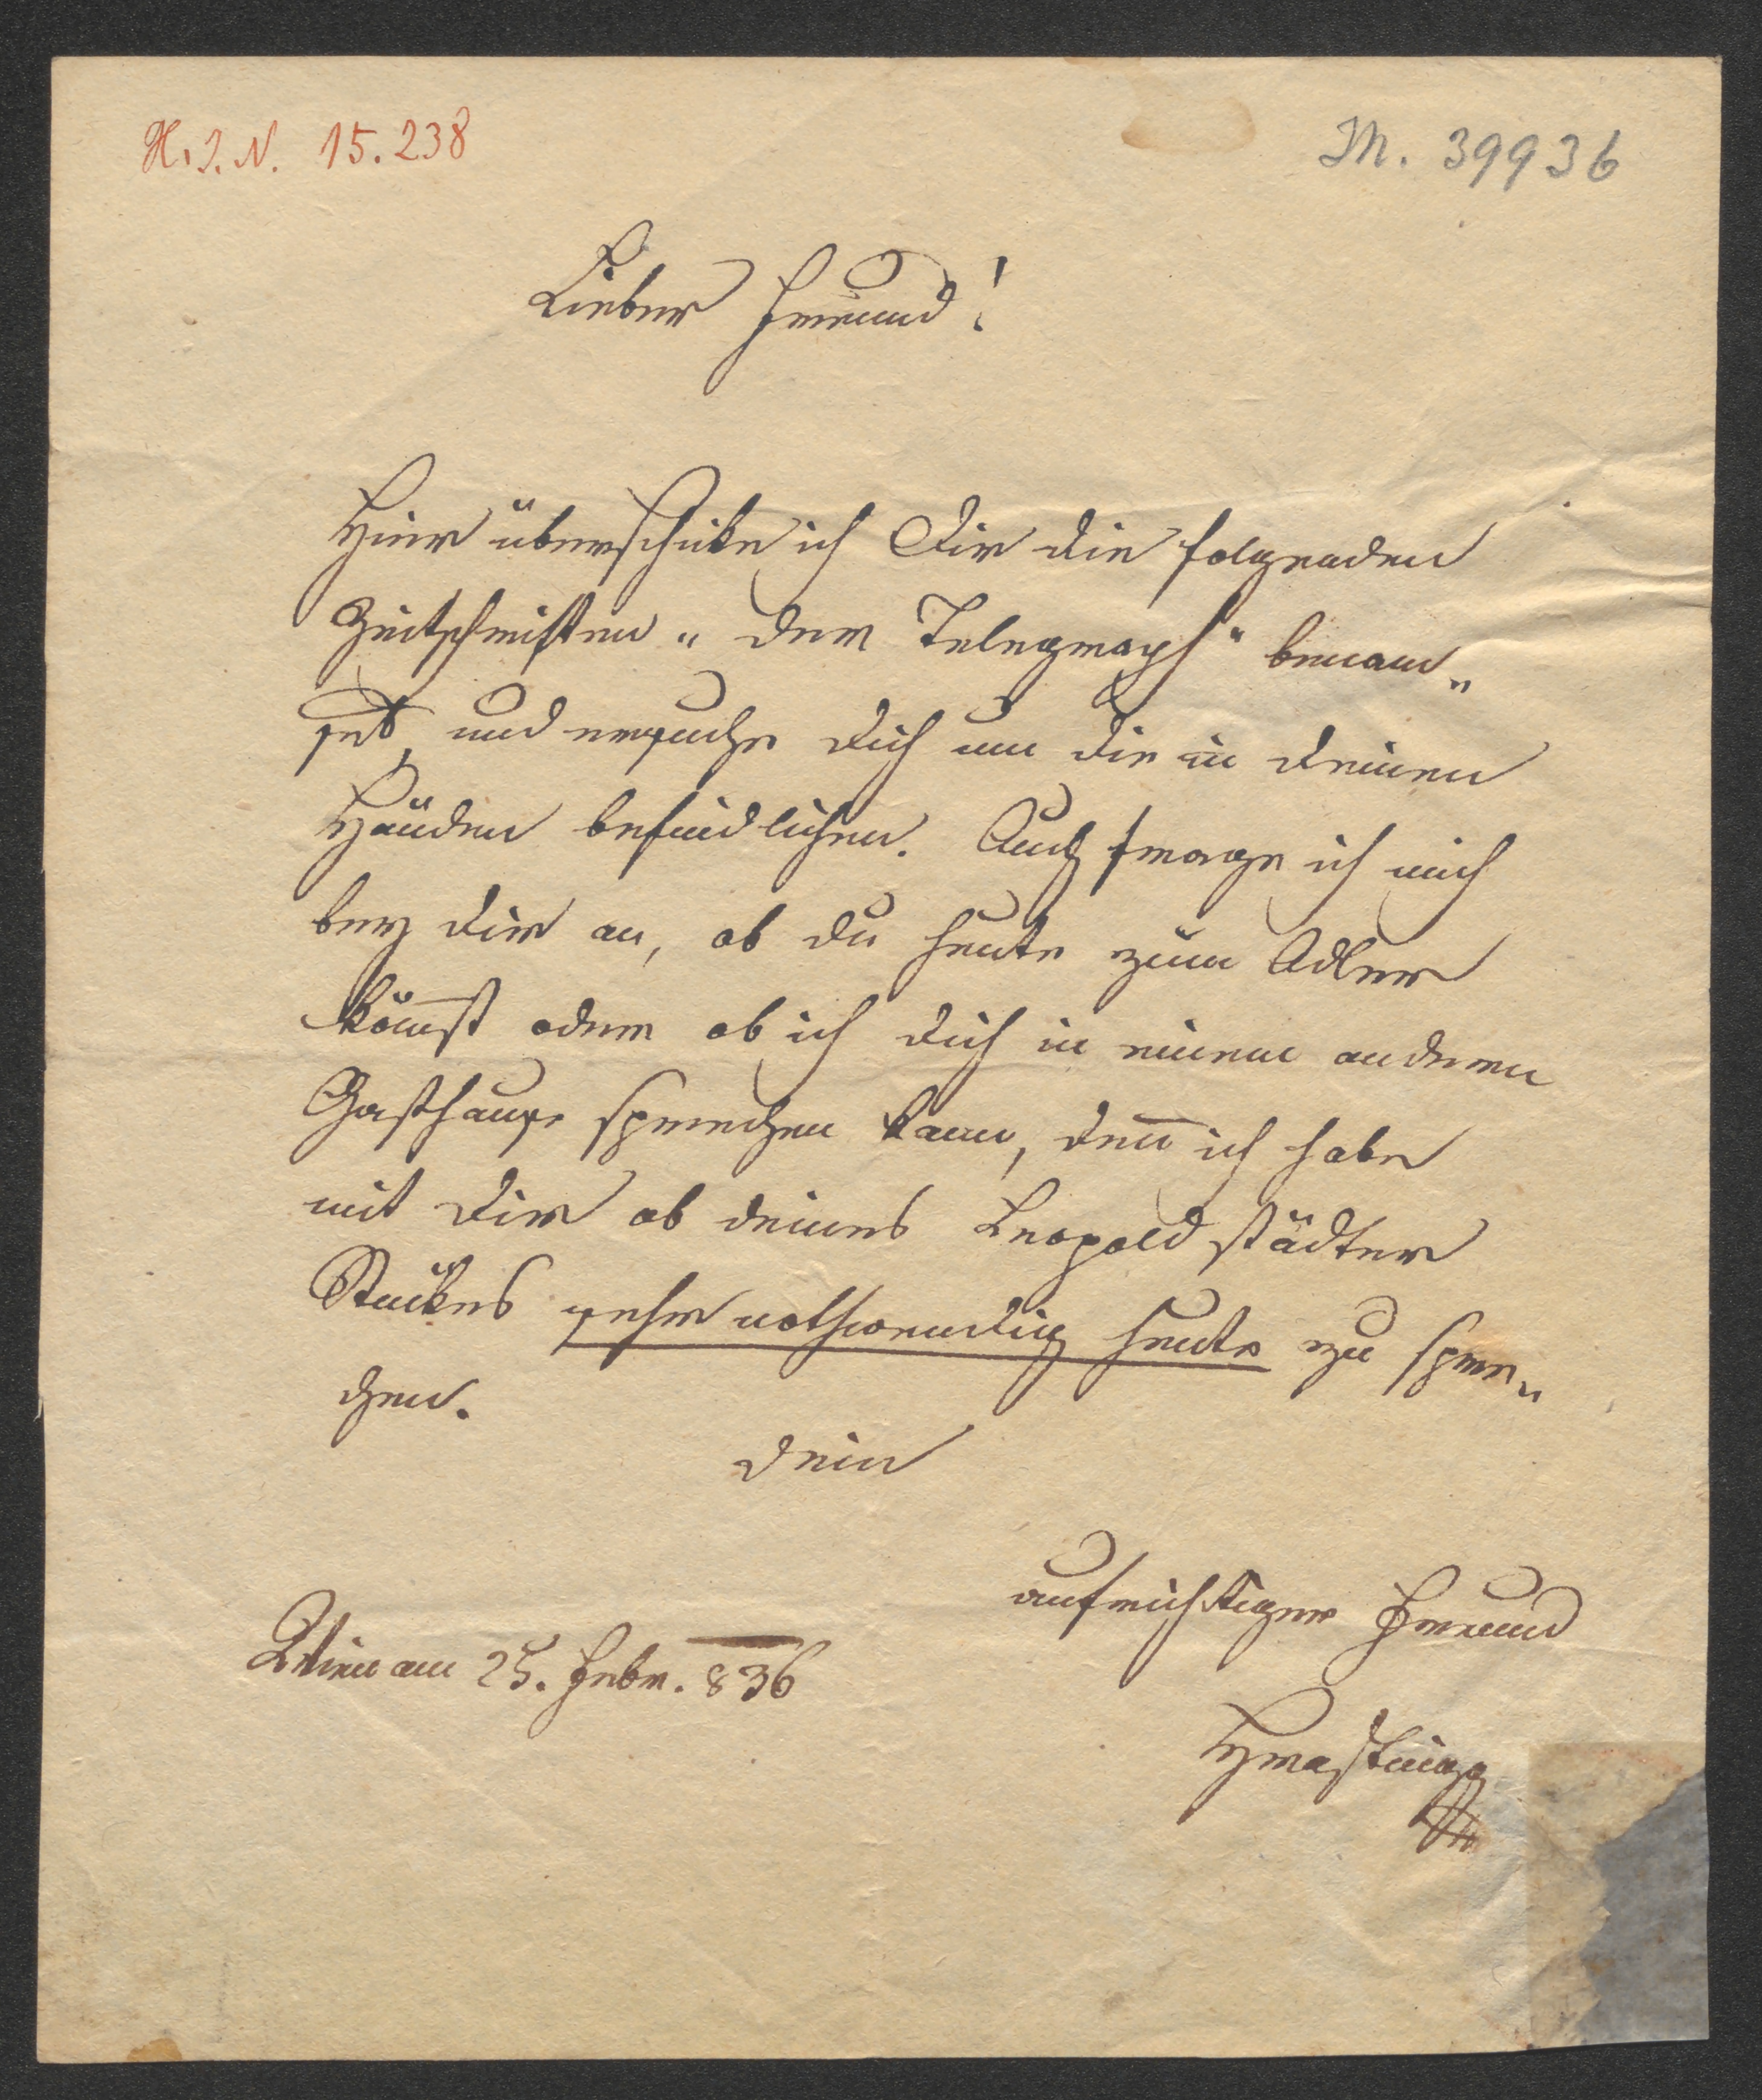 H.I.N. 15.238
Th. 39936
Lieber Freund!
Hier überschike ich Dir die folgenden
Zeitschriften „der Telegraph" benam„
set, und ersuche dich um die in deinen
Händen befindlichen. Auch frage ich mich
bey dir an, ob du heute zum Adler
köm̄st oder ob ich dich in einem anderen
Gasthause sprechen kann, den̄ ich habe
mit dir ob deines Leopoldstädter
Stückes sehr nothwendig heute zu spre„
chen.
dein
aufrichtiger Freund
Wien am 25. Febr. 836